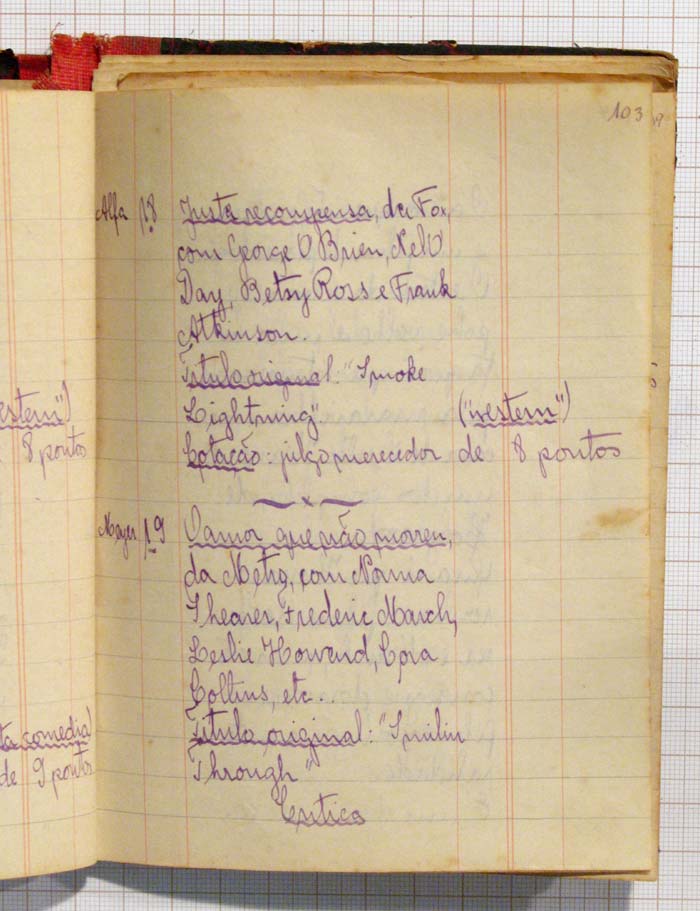 103
Alfa 18 Justa recompensa, da Fox,
com George O Brien, Nell O'
Day, Betsy Ross e Frank
Atkinson.
Titulo original: "Smoke
Lightning" ("western")
Cotação: julgo merecedor de 8 pontos
x
Meyer 19 O amor que não morreu,
da Metro, com Norma
Shearer, Frederic March,
Leslie Howard, Cora
Collins, etc...
Titulo original: "Smilin
Through"
Critica
estern")
8 pontos
ta comedia)
de 9 pontos